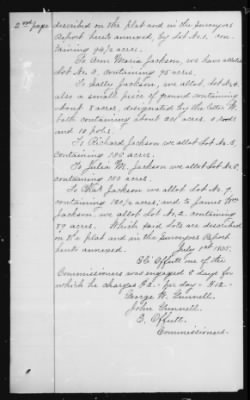 2nd page described on the plat and in the Surveyors
Report hereto annexed, by Lot No. 1, con-
taining 98 1/2 acres.
To Ann Maria Jackson, we have allotted
Lot No. 3, containing 95 acres.
To Sally Jackson, we allot, Lot No. 4,
also a small piece of ground containing
about 8 acres, designated by the letter
both containing about 201 acres. 0 roods
and 10 pols.
To Richard Jackson we allot Lot No. 5,
containing 100 acres.
To Julia M. Jackson we allot Lot No. 8
containing 100 acres.
To Chas. Jackson we allot Lot No. 7
containing 120 1/2 acres; and to James
Jackson we allot Lot No. 2 containing
89 acres. Which said lots are described
on the plat and in the Surveyors Report
hereto annexed. July 1st 1805.
Eli Offutt one of the
Commissioners was engaged 6 days for
which he charges $2. per day $12.
George W. Gunnell
John Gunnell
E. Offutt.
Commissioners.